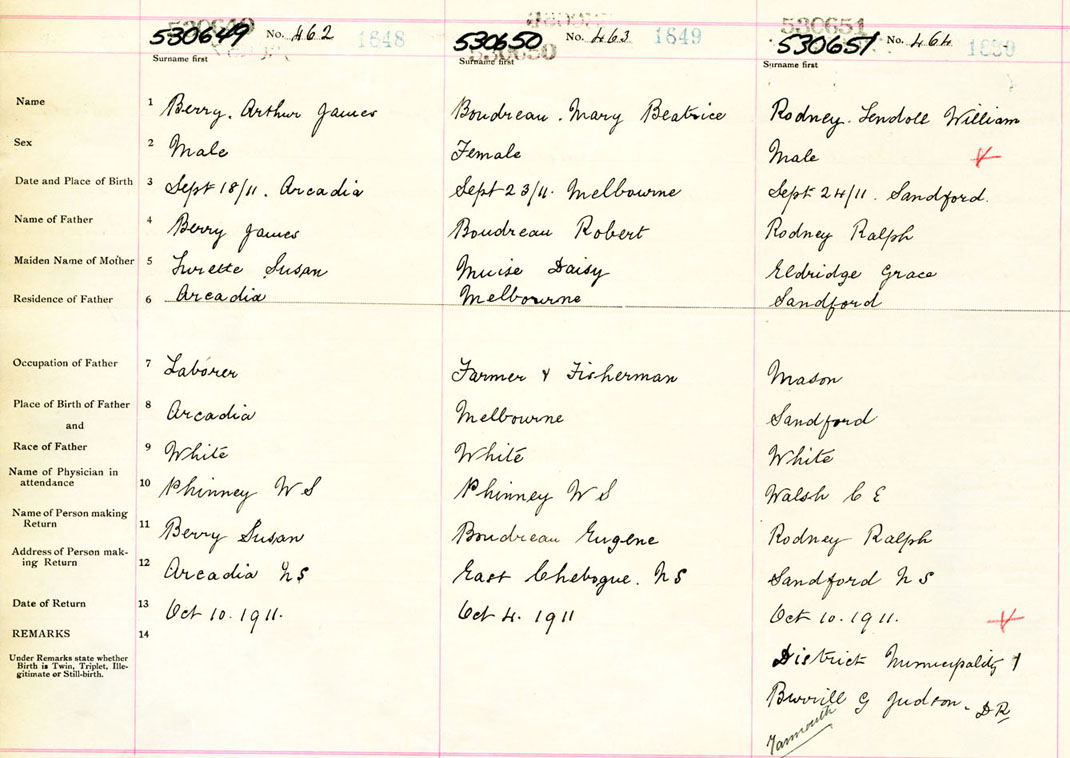 530649 No. 462 1648
530650 No. 463 1649
530651 No. 464 1650
Surname first Surname first Surname first
Name 1 Berry. Arthur James Boudreau. Mary Beatrice Rodney. Lendoll William
Sex 2 Male Female Male
Date and Place of Birth 3 Sept 18/11. Arcadia Sept 23/11. Melbourne Sept 24/11. Sandford.
Name of Father 4 Berry James Boudreau Robert Rodney Ralph
Maiden Name of Mother 5 Surette Susan Muise Daisy Eldridge Grace
Residence of Father 6 Arcadia Melbourne Sandford
Occupation of Father 7 Laborer Farmer & Fisherman Mason
Place of Birth of Father 8 Arcadia Melbourne Sandford
and
Race of Father 9 White White White
Name of Physician in
attendance 10 Phinney W S Phinney W S Walsh C E
Name of Person making
Return 11 Berry Susan Boudreau Eugene Rodney Ralph
Address of Person mak-
ing Return 12 Arcadia N S East Chebogue. N S Sandford N S
Date of Return 13 Oct 10. 1911. Oct 4. 1911 Oct 10. 1911.
REMARKS 14
Under Remarks state whether
Birth is Twin, Triplet, Ille-
gitimate or Still-birth.
District Municipality
Burrill G Judson. DR
Yarmouth